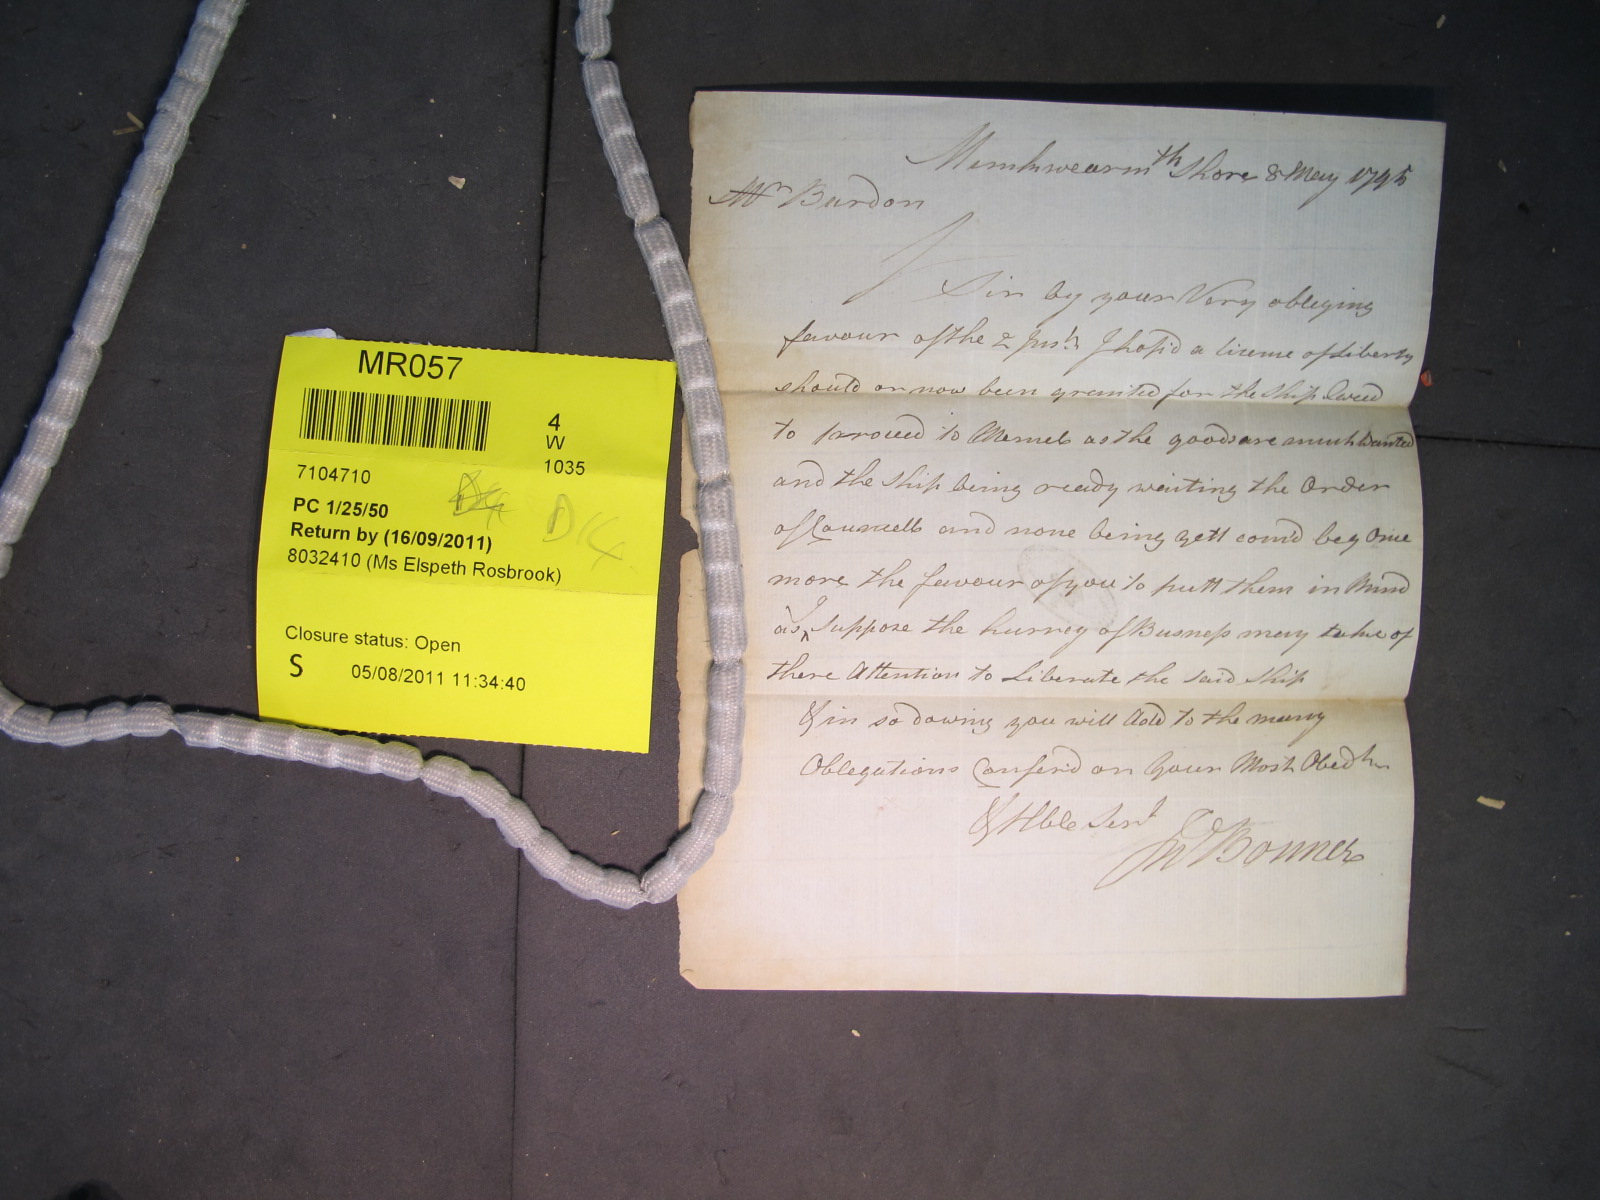 MR057
4
W
1035
7104710
PC 1/25/50
D14
Return by (16/09/2011)
8032410 (Ms Elspeth Rosbrook)
Closure status: Open
S 05/08/2011 11:34:40
Shore 8 May 1795
Mr Burdon
Sir by your Very obleging
favour of the 2 Inst. I hop'd a lisence of Liberty
should or now been granted for the Ship
to proceed to Memel as the goods are much Wanted
and the Ship being ready waiting the Order
of Councell and none being yett com'd beg Onie
more the favour of you to putt them in Mind
as I Suppose the hurrey of Busness may take of
there Attention to Liberate the said Ship
& in so dowing you will Add to the many
Oblegations Confer'd on Your Most Obedt
& Hble Servt
Jno Bonner